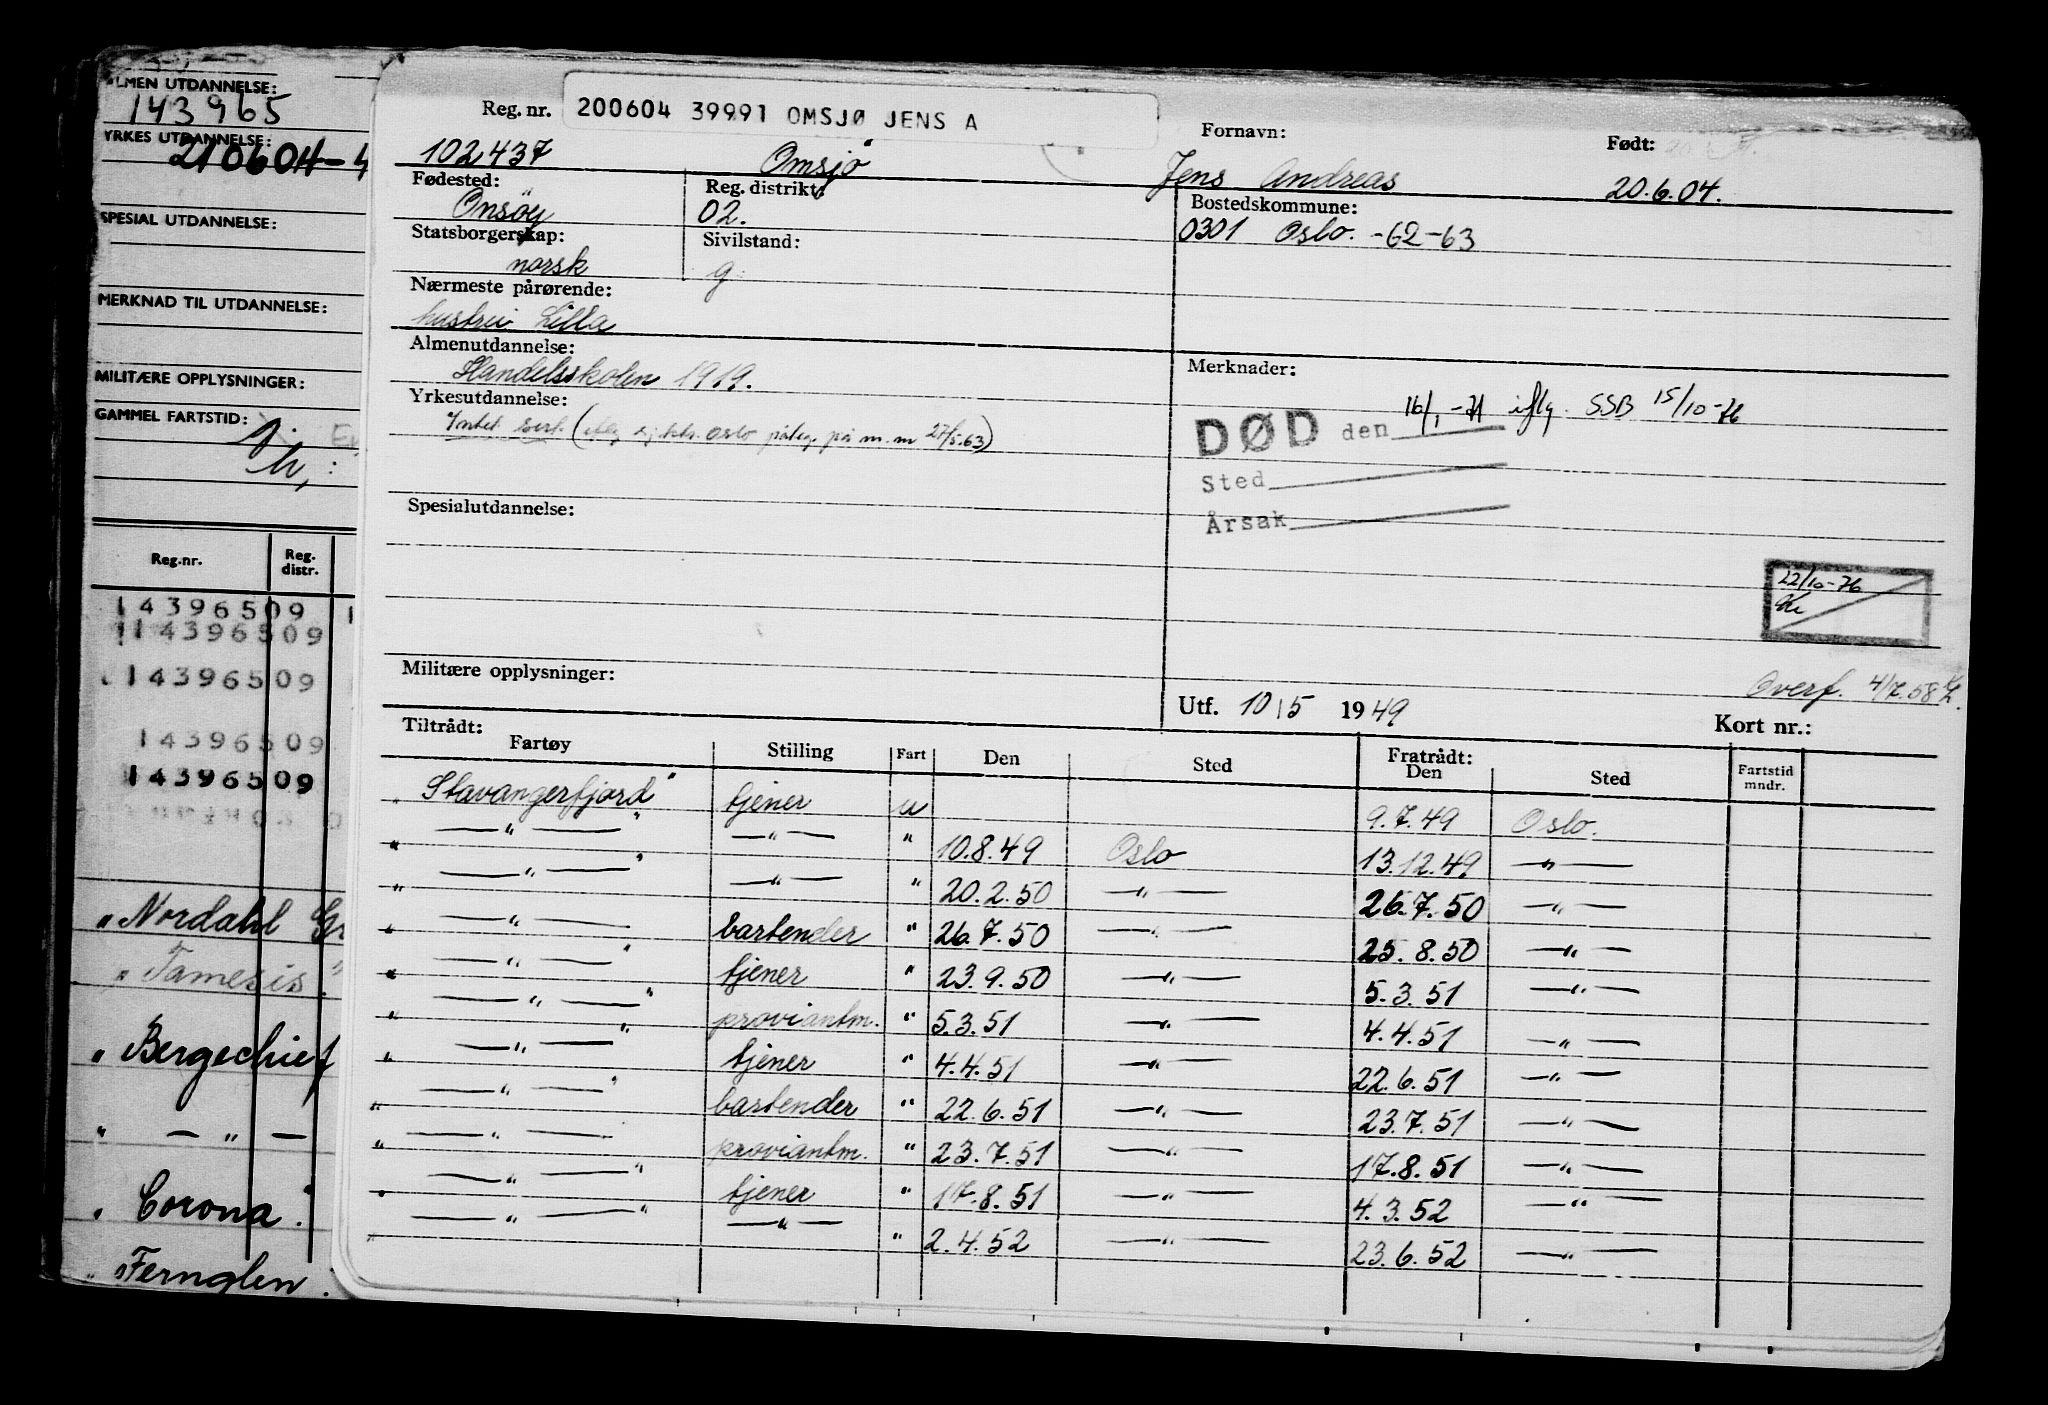 ALMEN UTDANNELSE:
143965
YRKES UTDANNELSE:
210604-4
SPESIAL UTDANNELSE:
MERKNAD TIL UTDANNELSE:
MILITÆRE OPPLYSNINGER:
GAMMEL FARTSTID:
Reg.nr. Reg. distr.
14396509
14396509
14396509
14396509
14396509
"Nordahl Gr
"Tamesis."
"Bergechief
" — " —
"Corona".
"Fernglen.
Reg. nr. 200604 39991 OMSJØ JENS A
Fornavn: Født:
102437 Omsjö Jens Andreas 20.6.04.
Fødested: Reg. distrikt: Bostedskommune:
Onsøy 02. 0301 Oslo. -62-63
Statsborgerskap: Sivilstand:
norsk g.
Nærmeste pårørende:
hustru Lilla
Almenutdannelse: Merknader:
Handelsskolen 1919.
DØD den 16/1-71 iflg. SSB 15/10-76
Yrkesutdannelse:
Intet sert. Oslo på m.m 27/5.63)
Sted
Spesialutdannelse:
Årsak
22/10-76
Militære opplysninger:
Overf. 4/7.58
Utf. 10/5 1949 Kort nr.:
Tiltrådt: Fratrådt:
Fartøy Stilling Fart Den Sted Den Sted Fartstid mndr.
"Stavangerfjord" tjener u 9.7.49 Oslo.
" — " — " — " — " 10.8.49 Oslo 13.12.49 — " —
" — " — " — " — " 20.2.50 — " — 26.7.50 — " —
" — " — bartender " 26.7.50 — " — 25.8.50 — " —
" — " — " tjener " 23.9.50 — " — 5.3.51 — " —
" — " — " proviantm. " 5.3.51 — " — 4.4.51 — " —
" — " — " tjener " 4.4.51 — " — 22.6.51 — " —
" — " — " bartender " 22.6.51 — " — 23.7.51 — " —
" — " — proviantm. " 23.7.51 — " — 17.8.51 — " —
" — " — " tjener " 17.8.51 — " — 4.3.52 — " —
" — " — " — " — " 2.4.52 — " — 23.6.52 — " —